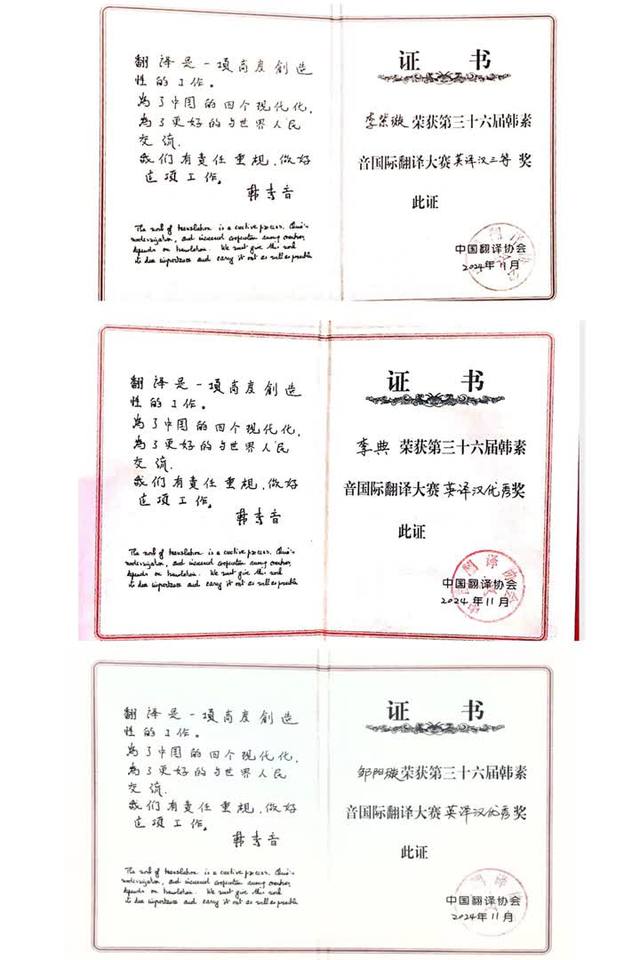 翻译是一項高度創造
性的工作。
为了中国的四个现代化,
为了更好的与世界人民
交流.
我们有责任重视,做好
这项工作。
韩素音
The work of translation is a creative process. China's
modernization, and increased cooperation among countries,
depends on translation. We must give this work
its due importance and carry it out as well as possible
证 书
李紫璇 荣获第三十六届韩素
音国际翻译大赛 英译汉三等 奖
此证
中国翻译协会
2024年11月
翻译是一項高度創造
性的工作。
为了中国的四个现代化,
为了更好的与世界人民
交流.
我们有责任重视,做好
这项工作。
韩素音
The work of translation is a creative process. China's
modernization, and increased cooperation among countries,
depends on translation. We must give this work
its due importance and carry it out as well as possible
证 书
李典 荣获第三十六届韩素
音国际翻译大赛 英译汉优秀奖
此证
中国翻译协会
2024年11月
翻译是一項高度創造
性的工作。
为了中国的四个现代化,
为了更好的与世界人民
交流.
我们有责任重视,做好
这项工作。
韩素音
The work of translation is a creative process. China's
modernization, and increased cooperation among countries,
depends on translation. We must give this work
its due importance and carry it out as well as possible
证 书
邹阳璇荣获第三十六届韩素
音国际翻译大赛 英译汉优秀奖
此证
中国翻译协会
2024年11月